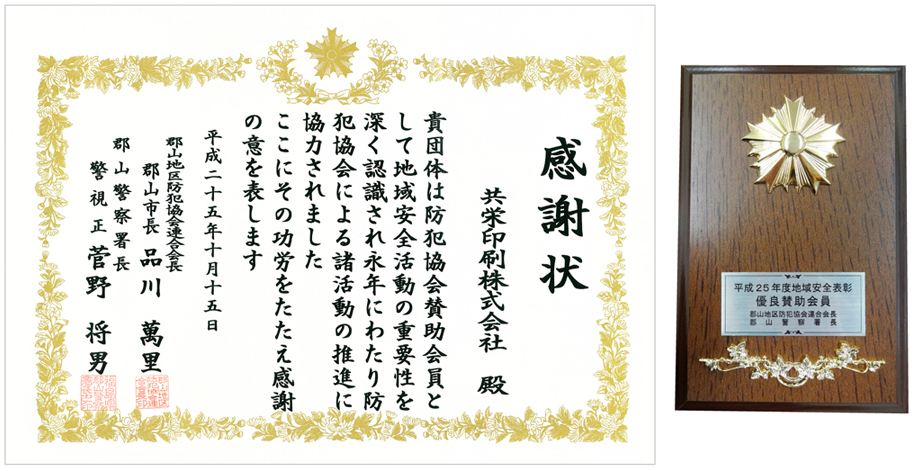 感謝状
共栄印刷株式会社 殿
貴団体は防犯協会賛助会員と
して地域安全活動の重要性を
深く認識され永年にわたり防
犯協会による諸活動の推進に
協力されました
ここにその功労をたたえ感謝
の意を表します
平成二十五年十月十五日
郡山地区防犯協会連合会長
郡山市長 品川 萬里
郡山警察署長
警視正 菅野 将男
平成25年度地域安全表彰
優良賛助会員
郡山地区防犯協会連合会長
郡山警察署長